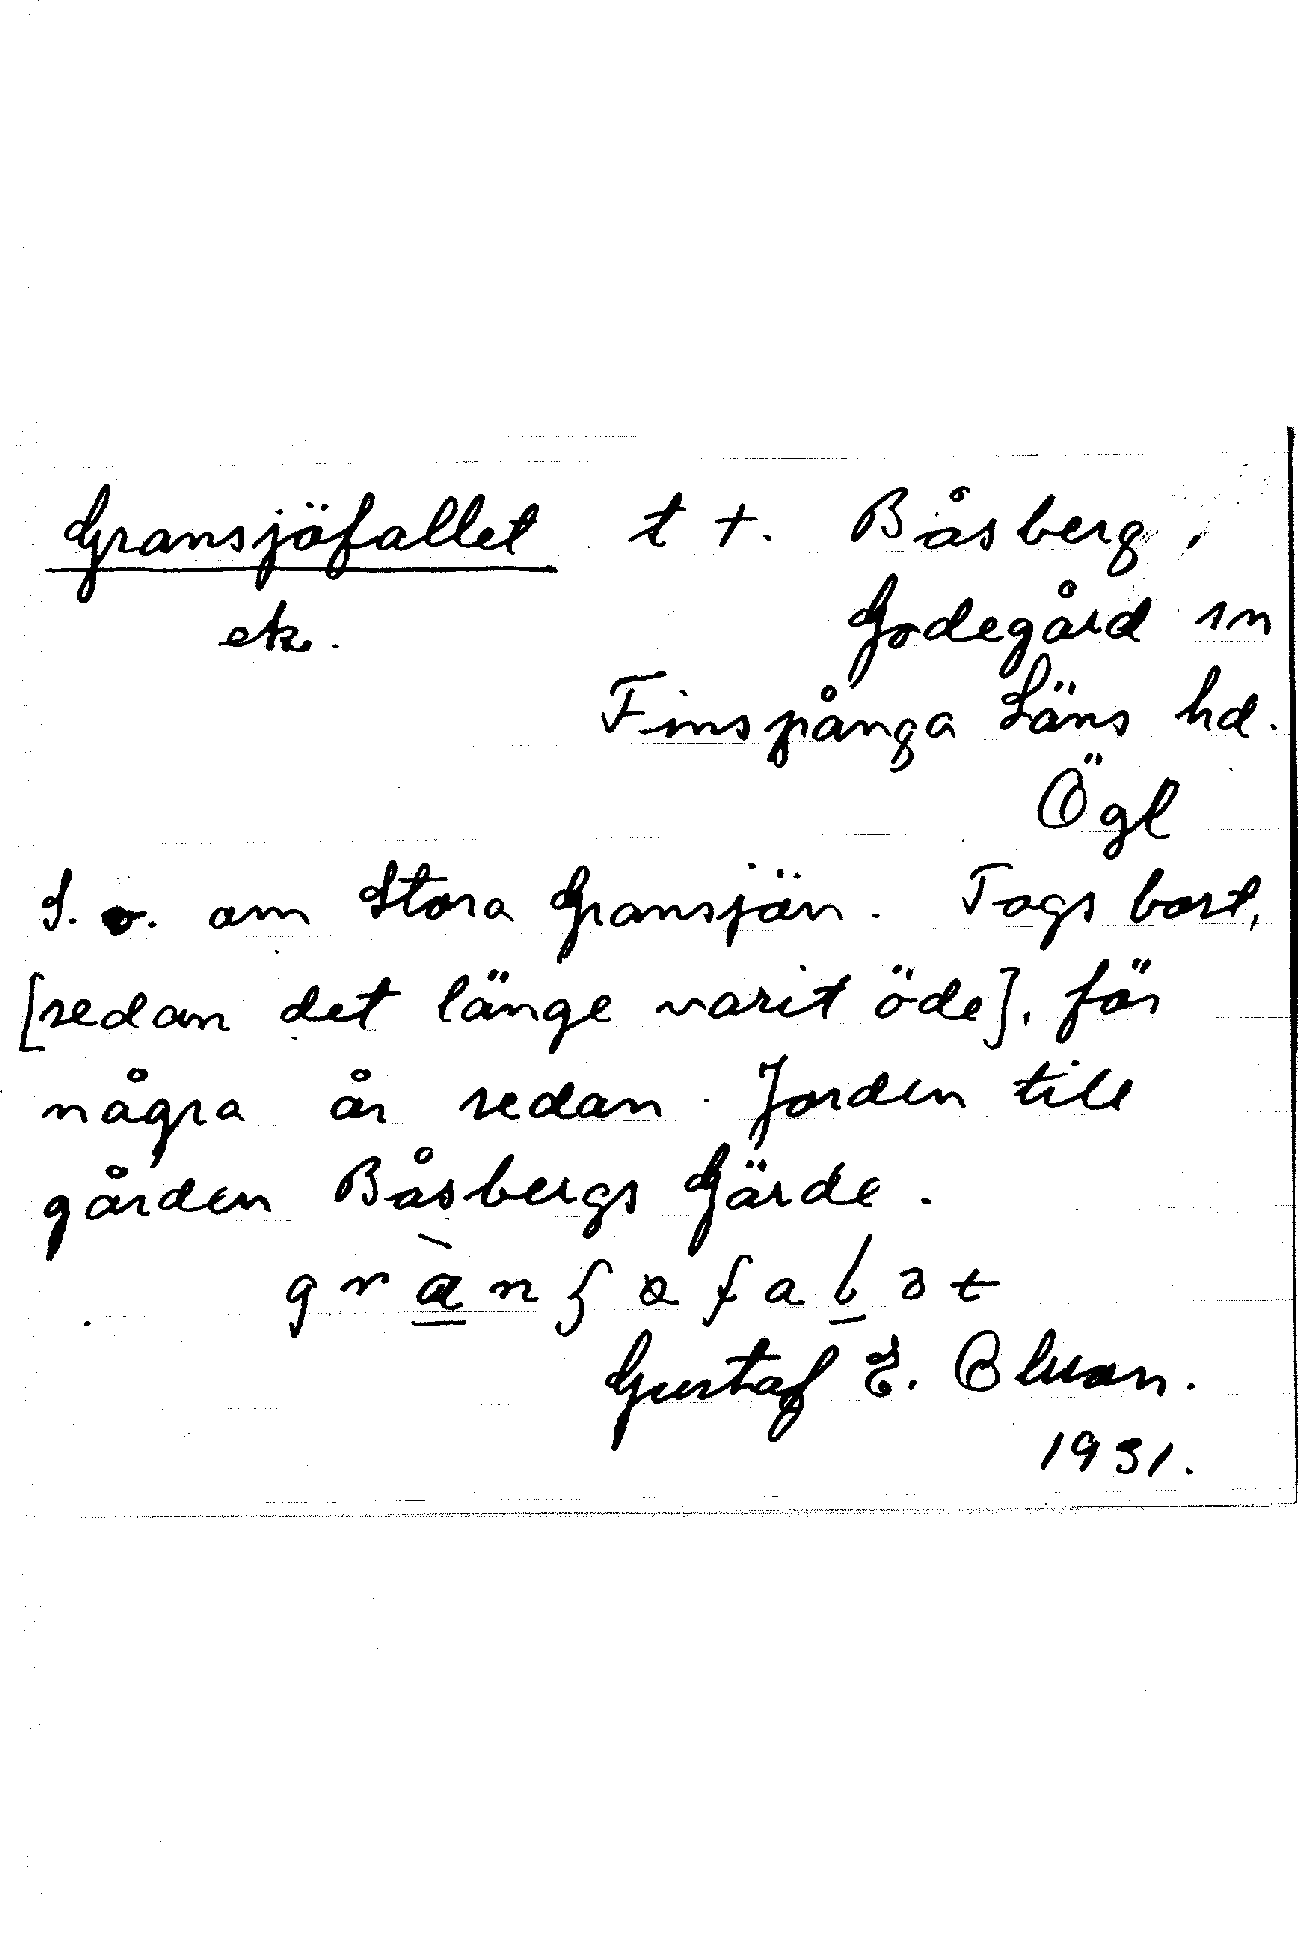 Gransjöfallet t +. Båsberg,
ek. Godegård sn
Finspånga Läns hd.
Ögl
S. o. om Stora Gransjön. Togs bort,
[sedan det länge varit öde], för
några år sedan. Jorden till
gården Båsbergs Gärde.
Gustaf E. Olson.
1931.